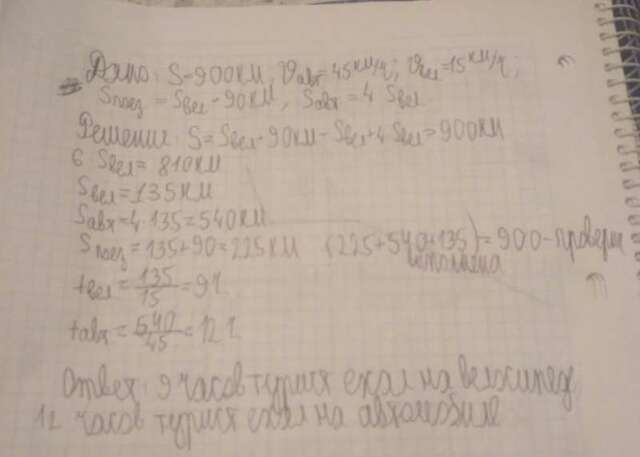 Дано: S=900км, Vавт=45км/ч; Vвел=15км/ч;
Sпоез = Sвел - 90км, Sавт = 4 Sвел
Решение: S = Sвел - 90км - Sвел + 4 Sвел = 900км
6 Sвел = 810км
Sвел = 135км
Sавт = 4 · 135 = 540км
Sпоез = 135 + 90 = 225км (225+540+135) = 900 - проверка
выполнена
tвел = 135/15 = 9ч
tавт = 540/45 = 12ч
Ответ: 9 часов турист ехал на велосипеде
12 часов турист ехал на автомобиле